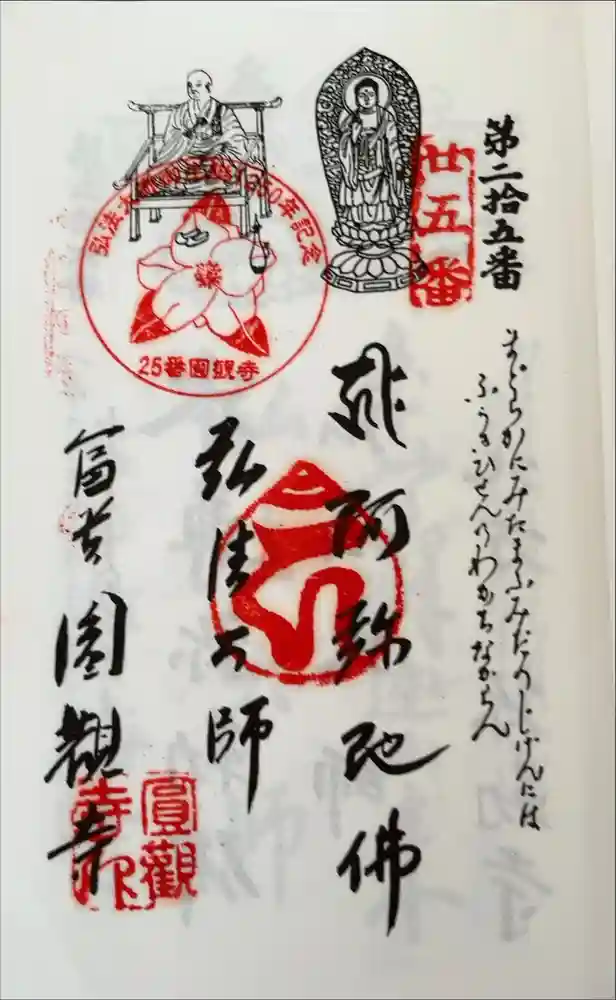 第二拾五番
廿五番
まどらかにみたまふみだのじげんには
ふうきひせんのわかちなからん
阿弥陀佛
弘法大師
弘法大 50年記念
25番圓観寺
富貴 圓觀寺
圓觀寺印